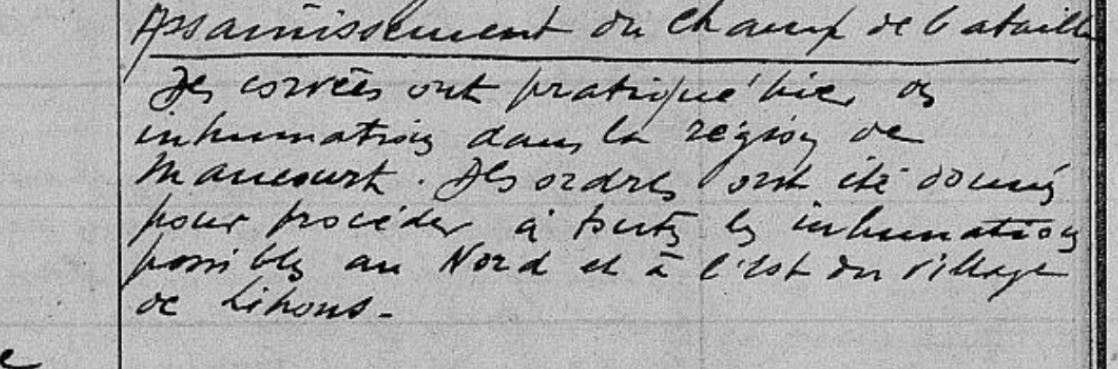 Assainissement du champ de bataille
Des corvées ont pratiqué hier des
inhumations dans la région de
Maucourt. Des ordres ont été donnés
pour procéder à toutes les inhumations
possibles au Nord et à l'Est du village
de Lihons.